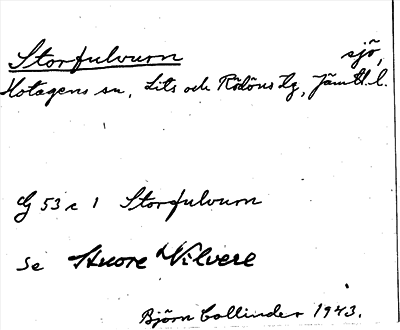 Storfulvurn sjö,
Hotagens sn, Lits och Rödöns tg, Jämtl. l.
G 53 c 1 Storfulvurn
Se Stuore Vilvere
Björn Collinder 1943.